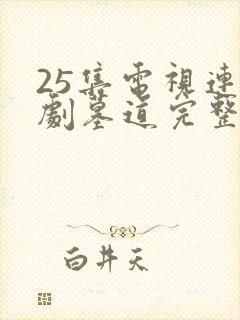 25集電視連
劇墓道完整
白井天